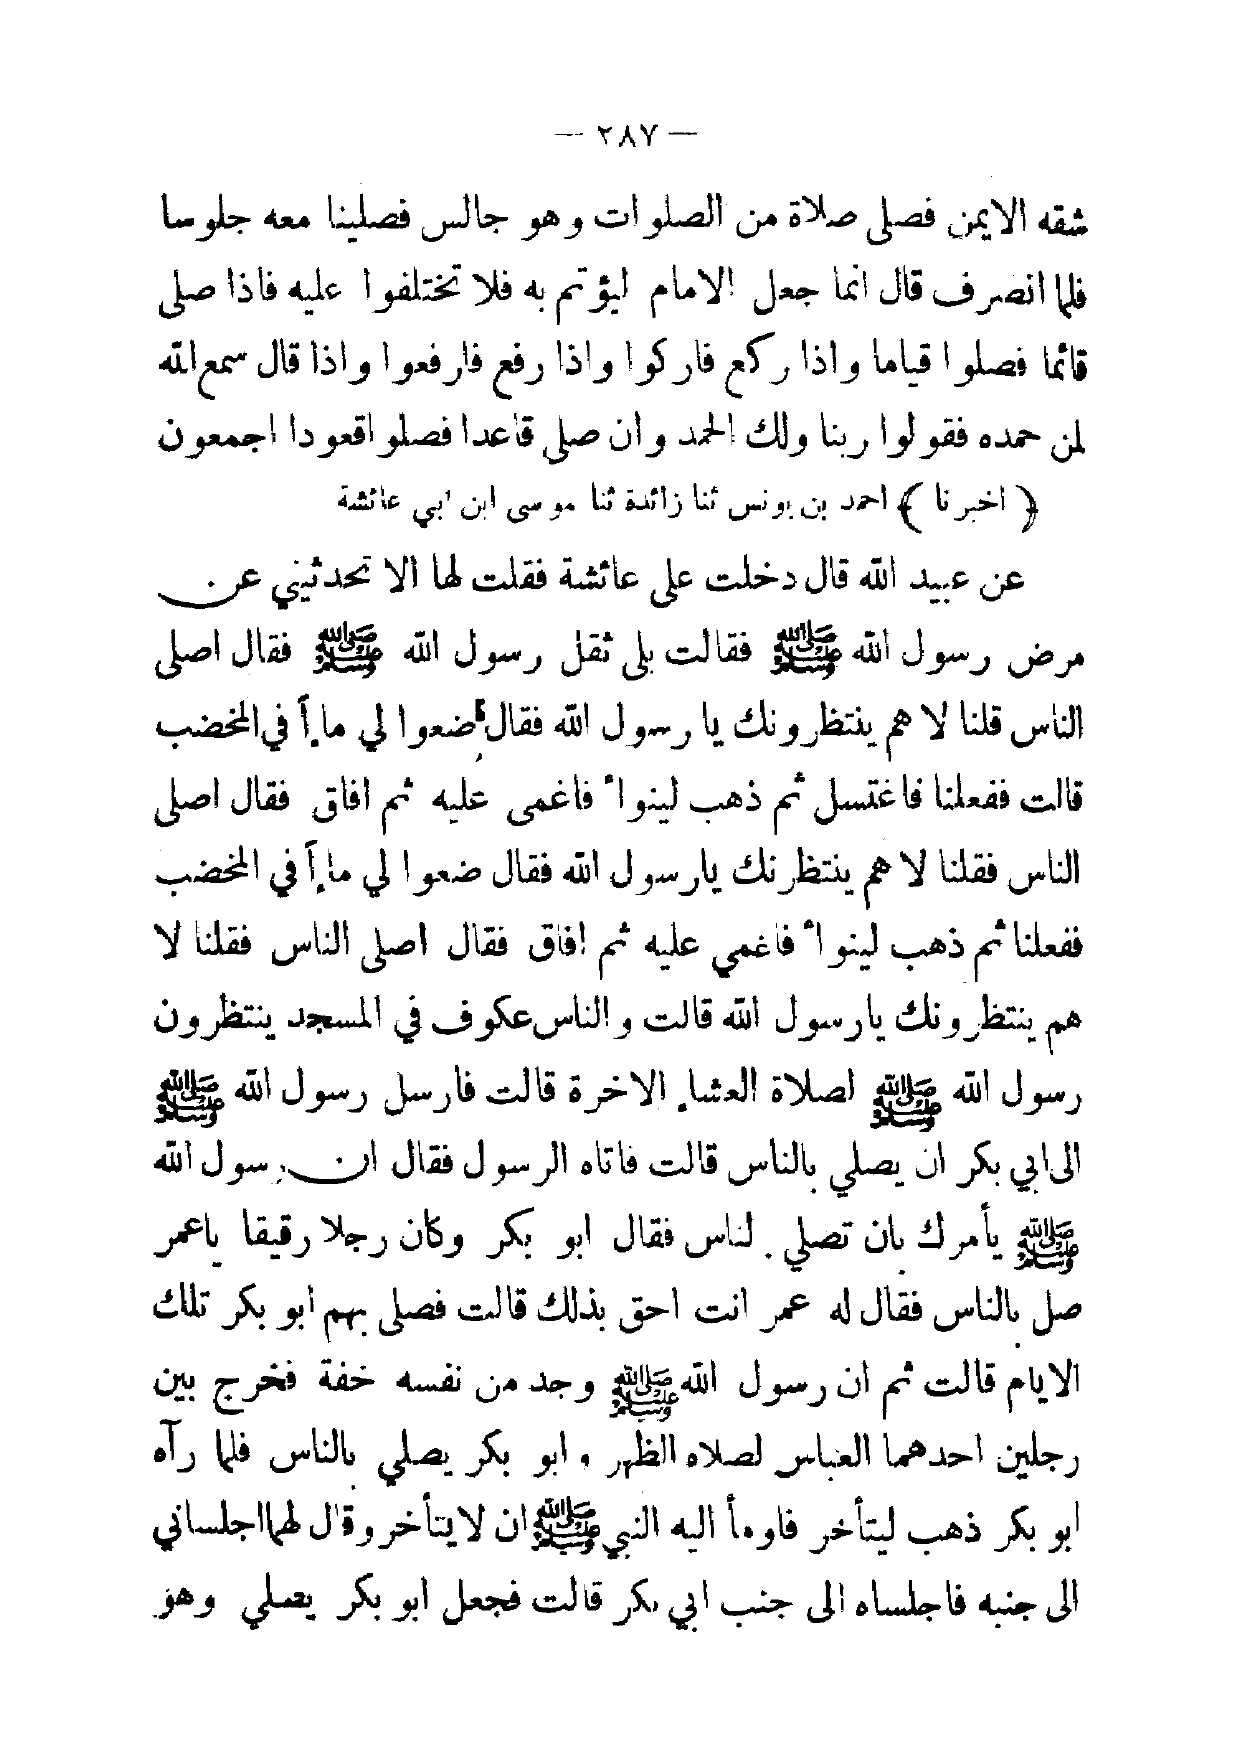 — ٢٨٧ —
شقه الايمن فصلى صلاة من الصلوات وهو جالس فصلينا معه جلوسا
فلما انصرف قال انما جعل الامام ليؤتم به فلا تختلفوا عليه فاذا صلى
قائما فصلوا قياما واذا ركع فاركوا واذا رفع فارفعوا واذا قال سمع الله
لمن حمده فقولوا ربنا ولك الحمد وان صلى قاعدا فصلوا قعودا اجمعون
﴿ اخبرنا ﴾ احمد بن يونس ثنا زائدة ثنا موسى ابن ابي عائشة
عن عبيد الله قال دخلت على عائشة فقلت لها الا تحدثيني عن
مرض رسول الله ﷺ فقالت بلى ثقل رسول الله ﷺ فقال اصلى
الناس قلنا لا هم ينتظرونك يا رسول الله فقال ضعوا لي ماءاً في المخضب
قالت ففعلنا فاغتسل ثم ذهب لينوأ فاغمى عليه ثم افاق فقال اصلى
الناس فقلنا لا هم ينتظرنك يارسول الله فقال ضعوا لي ماءاً في المخضب
ففعلنا ثم ذهب لينوأ فاغمي عليه ثم افاق فقال اصلى الناس فقلنا لا
هم ينتظرونك يارسول الله قالت والناس عكوف في المسجد ينتظرون
رسول الله ﷺ لصلاة العشاء الاخرة قالت فارسل رسول الله ﷺ
الى ابي بكر ان يصلي بالناس قالت فاتاه الرسول فقال ان رسول الله
ﷺ يأمرك بان تصلي بالناس فقال ابو بكر وكان رجلا رقيقا ياعمر
صل بالناس فقال له عمر انت احق بذلك قالت فصلى بهم ابو بكر تلك
الايام قالت ثم ان رسول الله ﷺ وجد من نفسه خفة فخرج بين
رجلين احدهما العباس لصلاه الظهر و ابو بكر يصلي بالناس فلما رآه
ابو بكر ذهب ليتأخر فاومأ اليه النبي ﷺ ان لايتأخر وقال لهما اجلساني
الى جنبه فاجلساه الى جنب ابي بكر قالت فجعل ابو بكر يصلي وهو